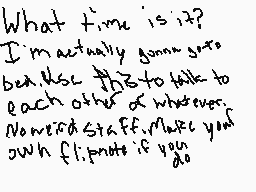 What time is it?
I'm actually gonna go to
bed. Use this to talk to
each other or whatever.
No weird staff. Make your
own flipnote if you
do